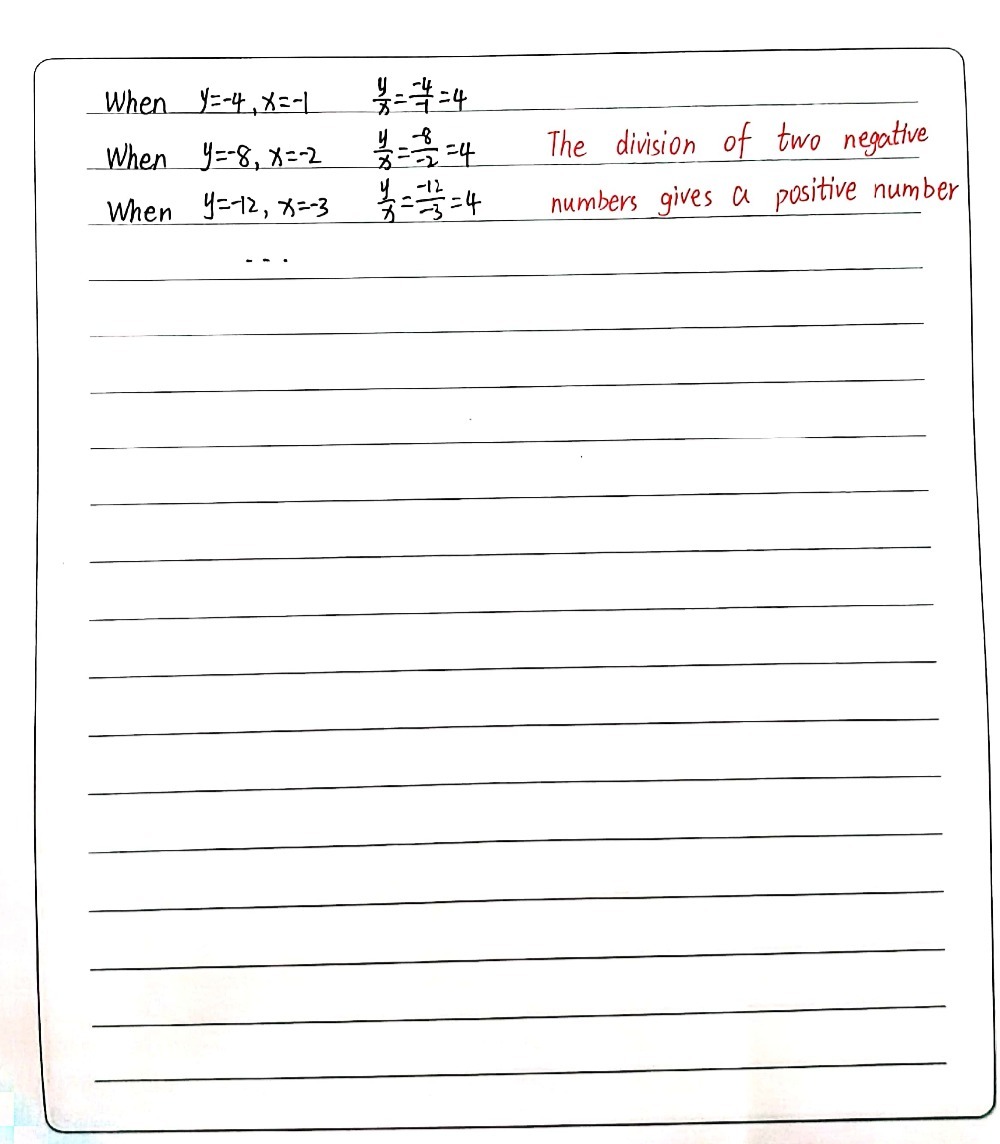 When y=-4, x=-1 y/x=-4/-1=4
When y=-8, x=-2 y/x=-8/-2=4 The division of two negative
When y=-12, x=-3 y/x=-12/-3=4 numbers gives a positive number
...